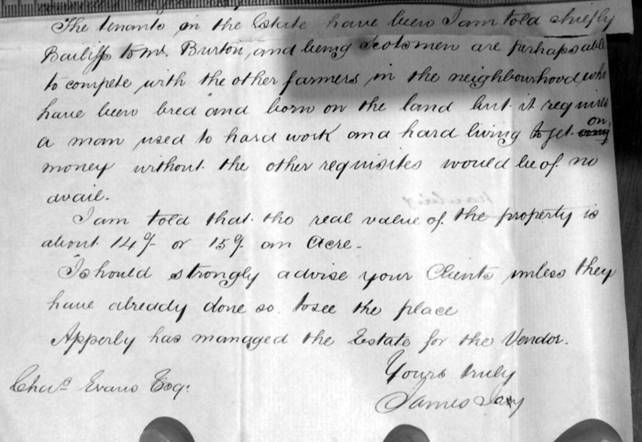 The tenants in the Estate have been I am told chiefly
Bailiffs to Mr Burton, and being Scotsmen are perhaps able
to compete with the other farmers in the neighbourhood who
have been bred and born on the land but it requires
a man used to hard work and hard living to get on,
money without the other requisites would be of no
avail.
I am told that the real value of the property is
about 14/- or 15/- an Acre.
I should strongly advise your Clients unless they
have already done so to see the place
Apperly has managed the Estate for the Vendor.
Yours truly
James
Chas. Evans Esq.